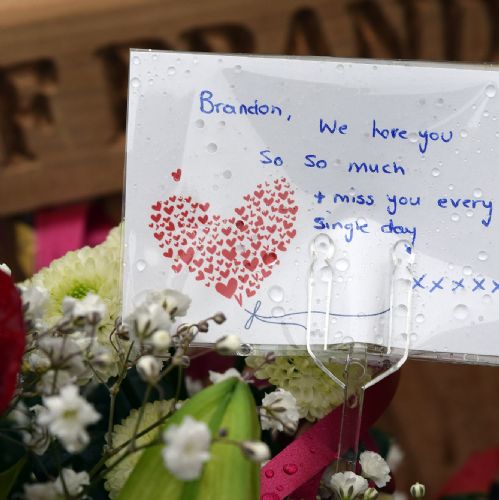 E BRAND
Brandon,
We love you
so so much
+ miss you every
single day
xxxxx